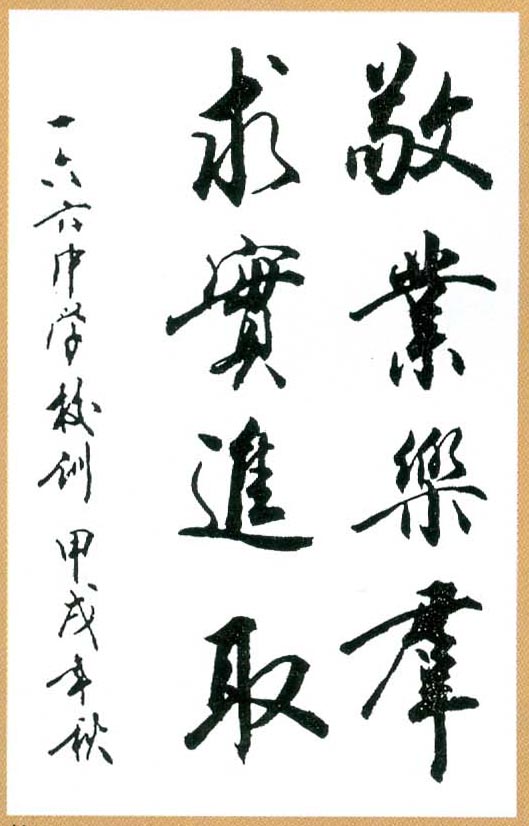 敬業樂羣
求實進取
一六六中学校训 甲戌年秋